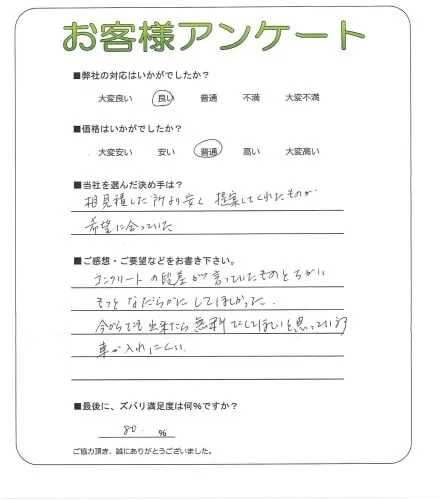 お客様アンケート
■弊社の対応はいかがでしたか?
大変良い 良い 普通 不満 大変不満
■価格はいかがでしたか?
大変安い 安い 普通 高い 大変高い
■当社を選んだ決め手は?
相見積した所より安く 提案してくれたものが
希望に合っていた
■ご感想・ご要望などをお書き下さい。
コンクリートの段差が言っていたものとちがい
もっとなだらかにしてほしかった.
今からでも出来たら無料でしてほしいと思っています
車が入れにくい.
■最後に、ズバリ満足度は何%ですか?
80. %
ご協力頂き、誠にありがとうございました。